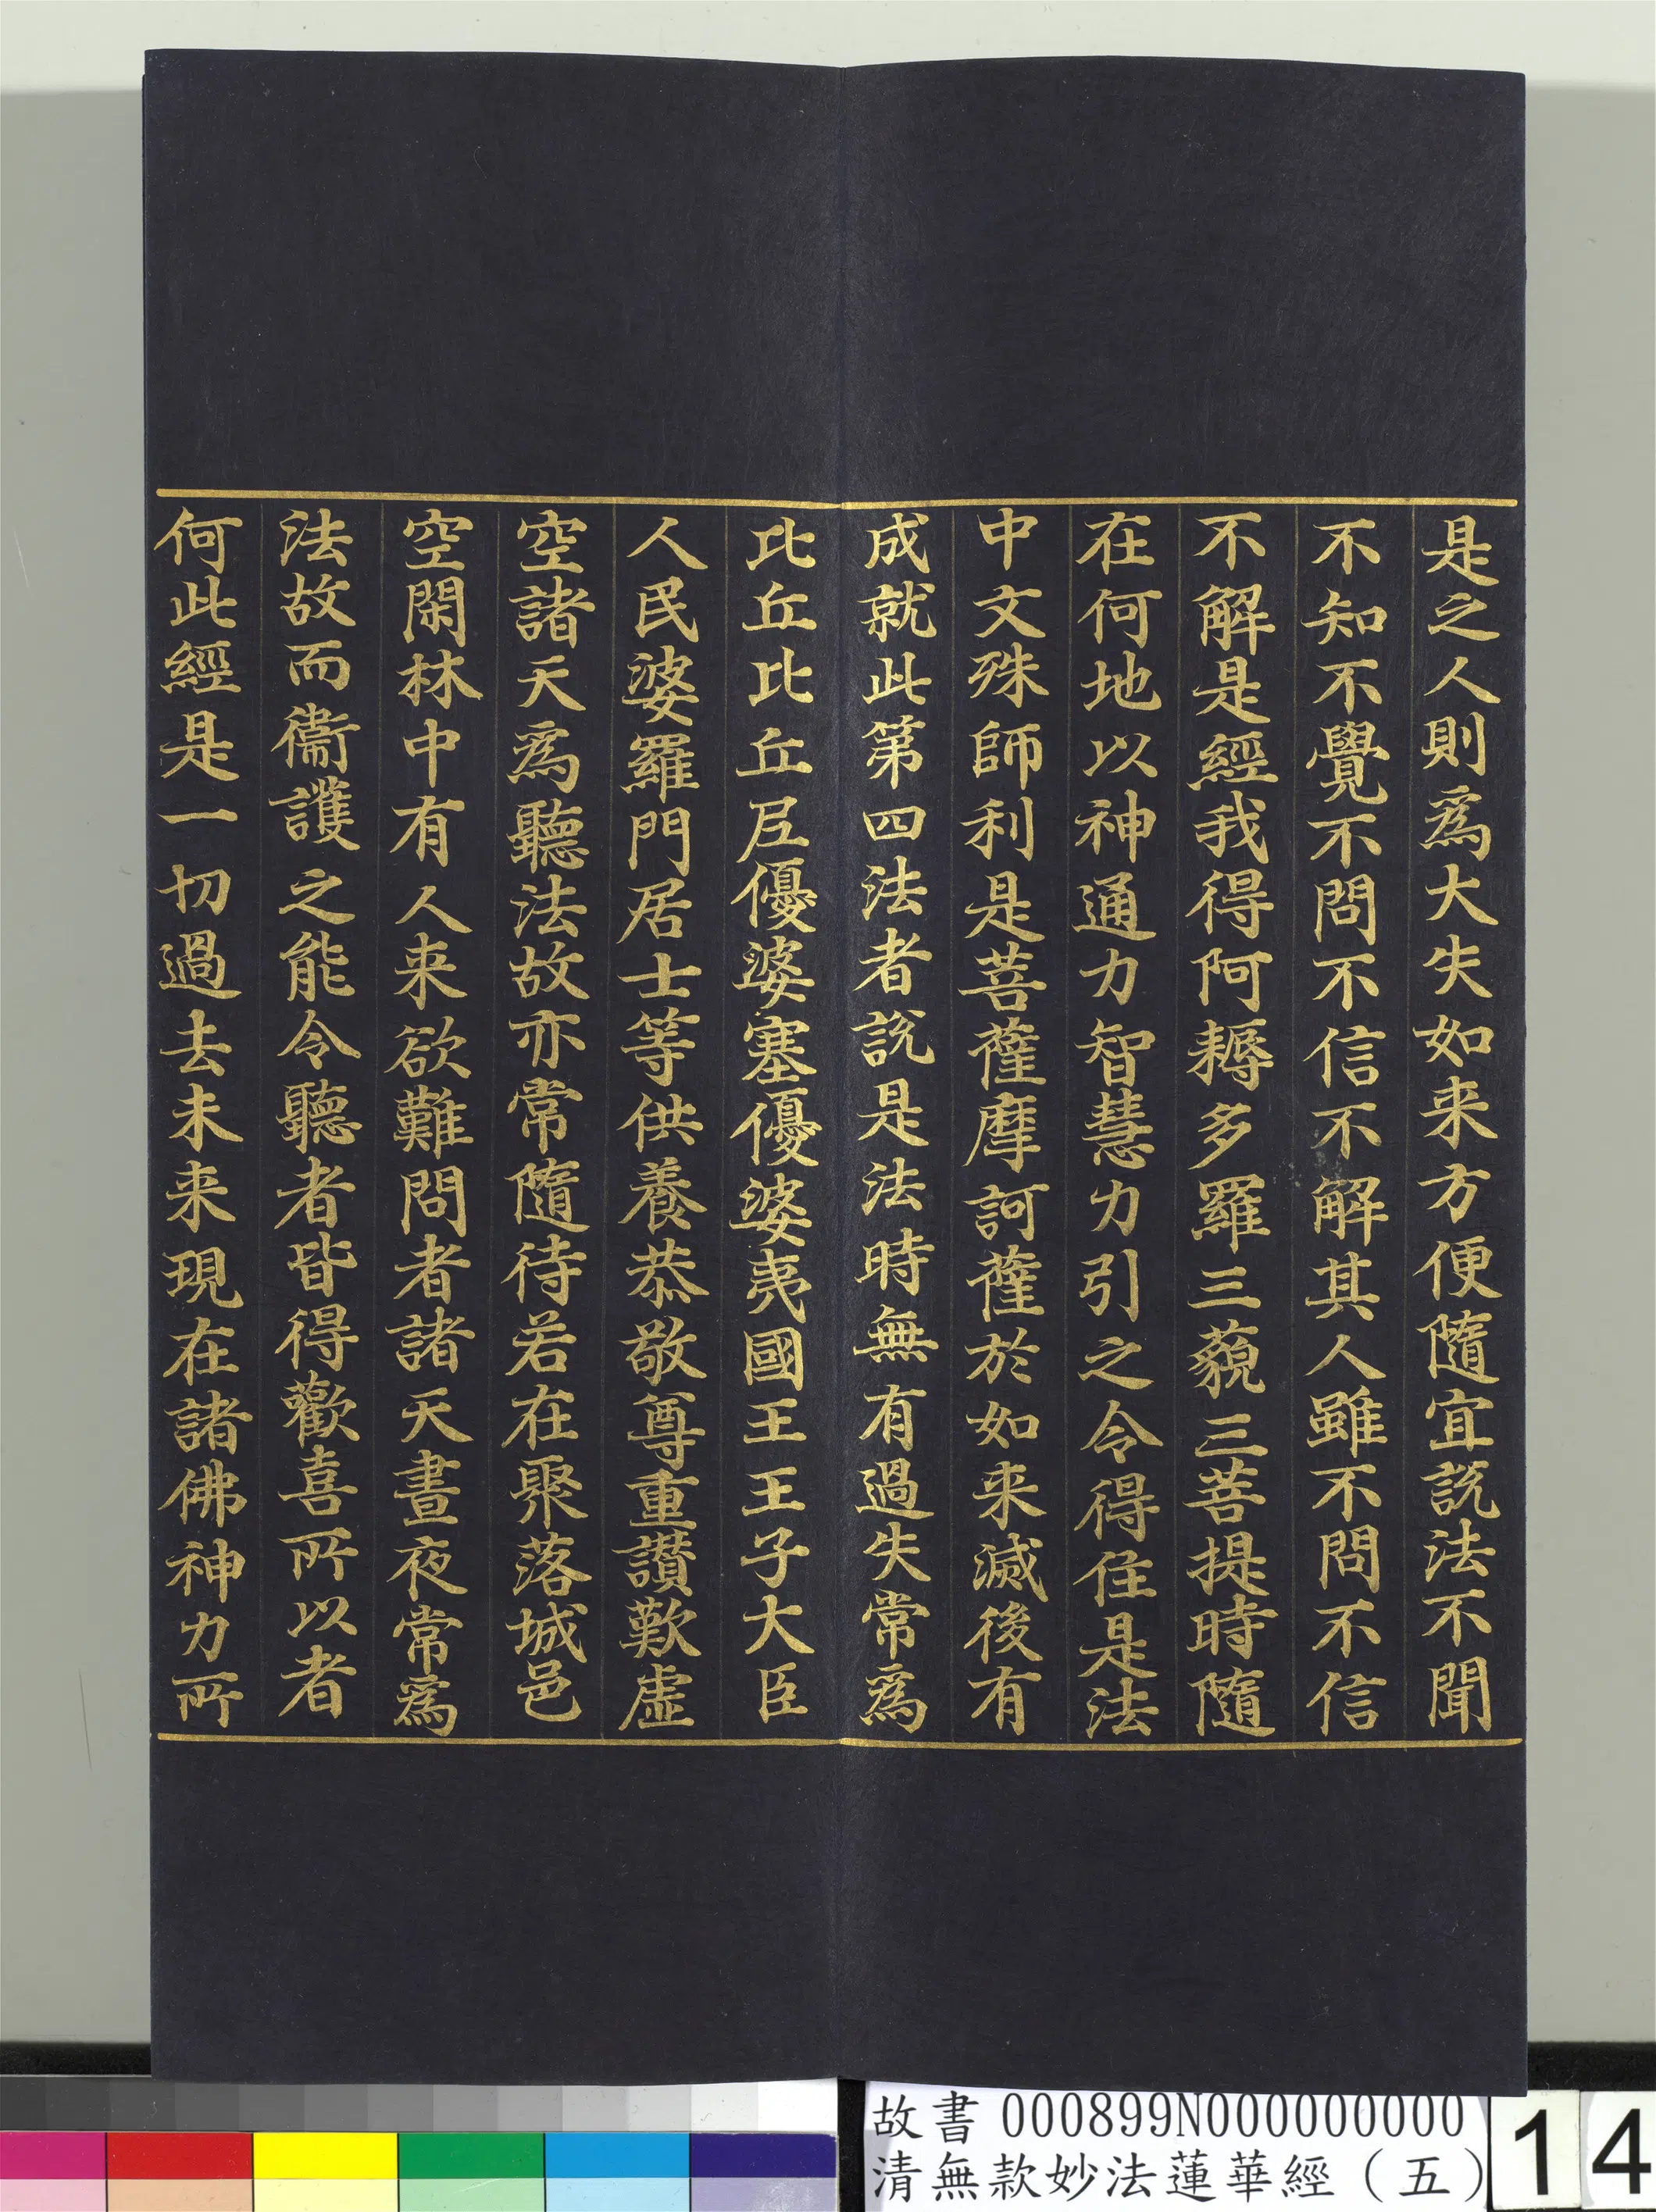 是之人則為大失如来方便隨宜說法不聞
不知不覺不問不信不解其人雖不問不信
不解是經我得阿耨多羅三藐三菩提時隨
在何地以神通力智慧力引之令得住是法
中文殊師利是菩薩摩訶薩於如来滅後有
成就此第四法者說是法時無有過失常為
比丘比丘尼優婆塞優婆夷國王王子大臣
人民婆羅門居士等供養恭敬尊重讚歎虛
空諸天為聽法故亦常隨待若在聚落城邑
空閑林中有人来欲難問者諸天晝夜常為
法故而衞護之能令聽者皆得歡喜所以者
何此經是一切過去未来現在諸佛神力所
故書 000899N000000000
清無款妙法蓮華經（五）
14